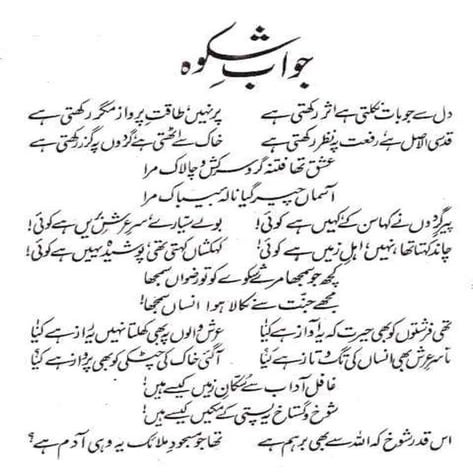 جوابِ شکوہ
دل سے جو بات نکلتی ہے اثر رکھتی ہے پر نہیں، طاقتِ پرواز مگر رکھتی ہے
قدسی الاصل ہے، رفعت پہ نظر رکھتی ہے خاک سے اٹھتی ہے گردوں پہ گزر رکھتی ہے
عشق تھا فتنہ گر و سرکش و چالاک مرا
آسماں چیر گیا نالہ بیباک مرا
پیرِ گردوں نے کہا سن کے، کہیں ہے کوئی! بولے سیارے، سرِ عرشِ بریں ہے کوئی!
چاند کہتا تھا، نہیں، اہلِ زمیں ہے کوئی! کہکشاں کہتی تھی، پوشیدہ یہیں ہے کوئی!
کچھ جو سمجھا مرے شکوے کو تو رضواں سمجھا
مجھے جنت سے نکالا ہوا انساں سمجھا!
تھی فرشتوں کو بھی حیرت کہ یہ آواز ہے کیا! عرش والوں پہ بھی کھلتا نہیں یہ راز ہے کیا!
تا سرِ عرش بھی انساں کی تگ و تاز ہے کیا؟ آ گئی خاک کی چٹکی کو بھی پرواز ہے کیا؟
غافل آداب سے سُکّانِ زمیں کیسے ہیں!
شوخ و گستاخ یہ پستی کے مکیں کیسے ہیں!
اس قدر شوخ کہ اللہ سے بھی برہم ہے تھا جو مسجودِ ملائک یہ وہی آدم ہے؟